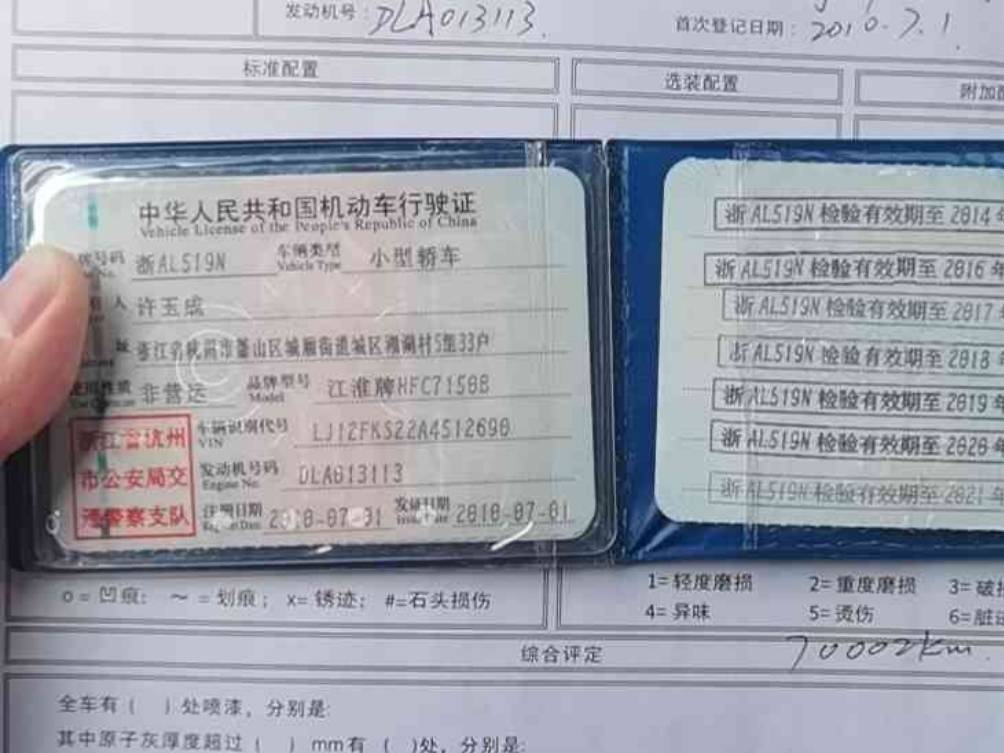 发动机号：DLA013113.
首次登记日期：2010.7.1.
标准配置
选装配置
附加
中华人民共和国机动车行驶证
Vehicle License of the People's Republic of China
号码 浙AL519N 车辆类型 小型轿车
No. Vehicle Type
人 许玉成
址 浙江省杭州市萧山区城厢街道城区湘湖村5组33户
使用性质 非营运 品牌型号 江淮牌HFC7150B
Model
浙江省杭州
市公安局交
通警察支队
车辆识别代号 LJ12FKS22A4512690
VIN
发动机号码 DLA013113
Engine No.
注册日期 2010-07-01 发证日期 2010-07-01
浙AL519N 检验有效期至 2014
浙AL519N 检验有效期至 2016年
浙AL519N 检验有效期至 2017
浙AL519N 检验有效期至 2018
浙AL519N 检验有效期至 2019年
浙AL519N 检验有效期至 2020
浙AL519N 检验有效期至 2021
o=凹痕； ～=划痕； x=锈迹； #=石头损伤
1=轻度磨损 2=重度磨损 3=破
4=异味 5=烫伤 6=脏
综合评定
70002km.
全车有（ ）处喷漆，分别是:
其中原子灰厚度超过（ ）mm有（ ）处，分别是: